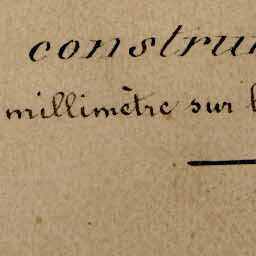 constru
millimètre sur l